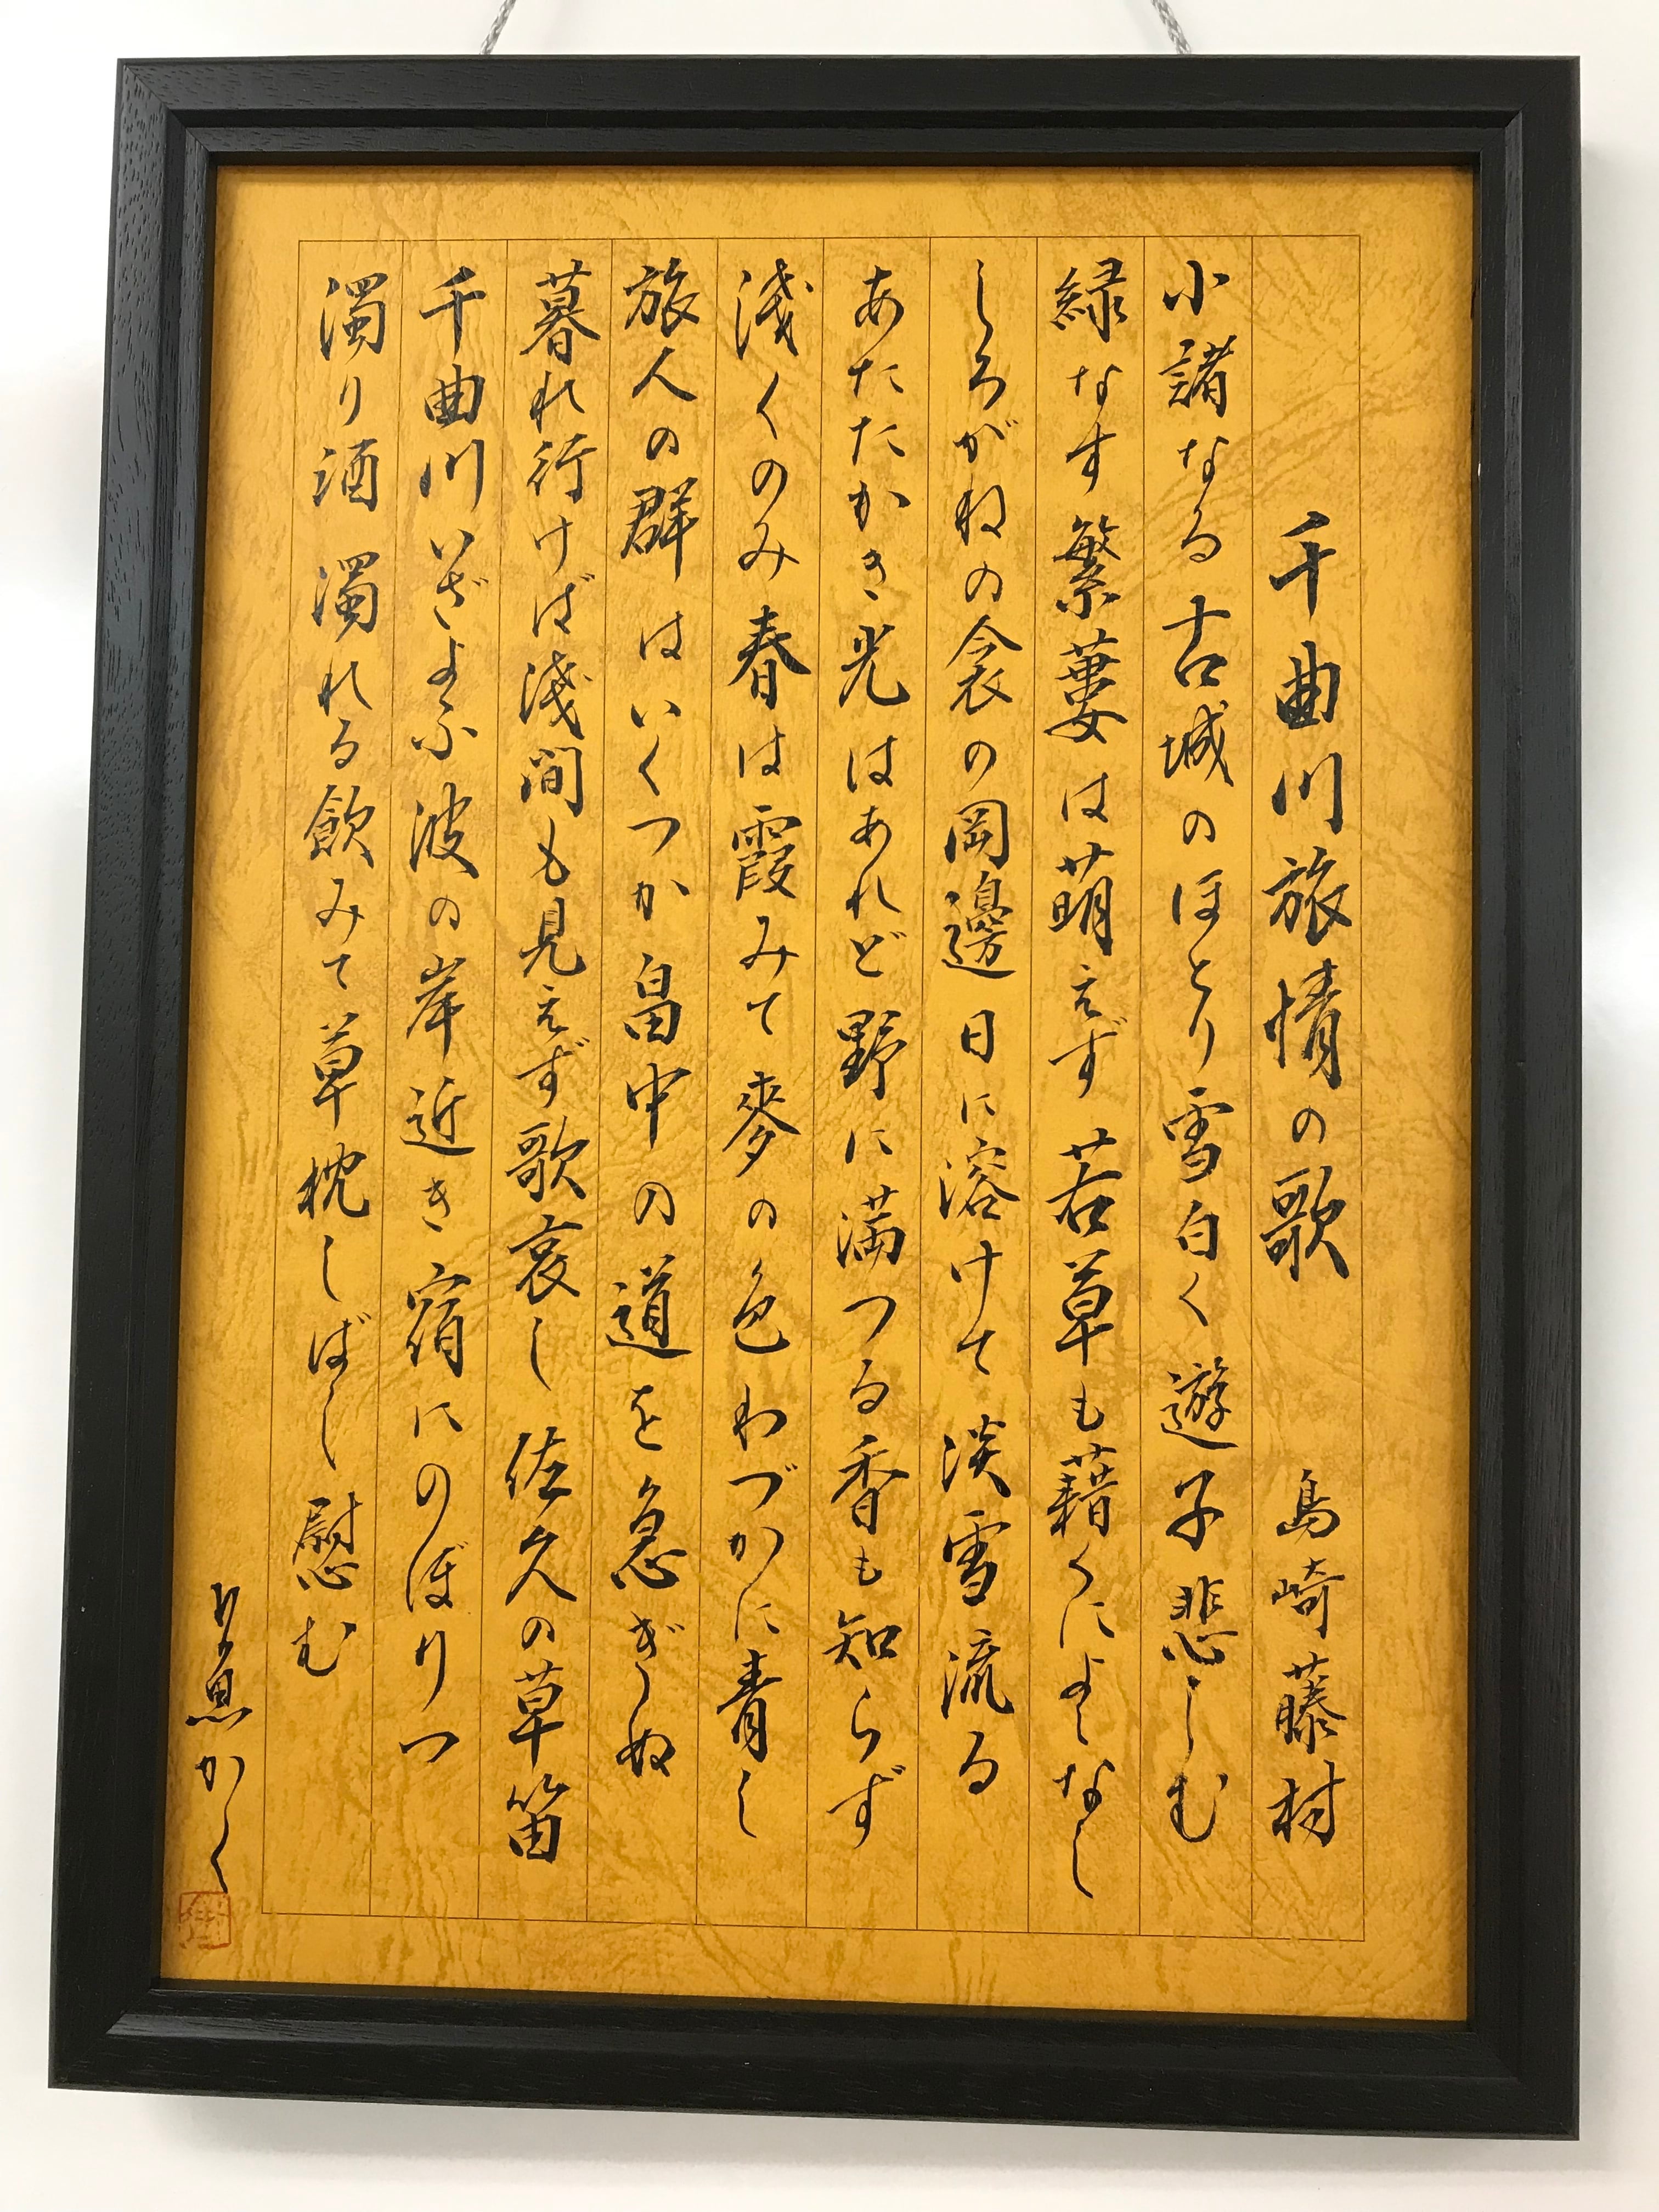 千曲川旅情の歌 島崎藤村
小諸なる古城のほとり雪白く遊子悲しむ
緑なす繁蔞は萌えず若草も藉くによしなし
しろがねの衾の岡邊日に溶けて淡雪流る
あたたかき光はあれど野に満つる香も知らず
浅くのみ春は霞みて麥の色わづかに青し
旅人の群はいくつか畠中の道を急ぎぬ
暮れ行けば浅間も見えず歌哀し佐久の草笛
千曲川いざよふ波の岸近き宿にのぼりつ
濁り酒濁れる飲みて草枕しばし慰む
かく